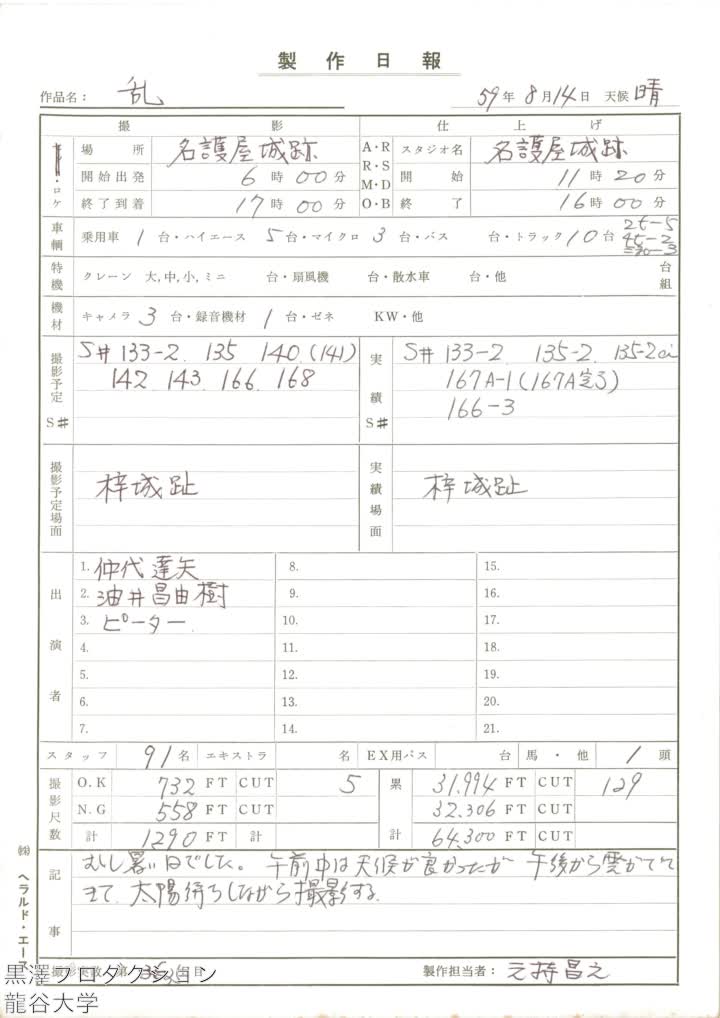 製作日報
作品名： 乱 59年 8月14日 天候 晴
撮影 仕上げ
・ロケ 場所 名護屋城跡 A・R R・S M・D O・B スタジオ名 名護屋城跡
開始出発 6時00分 開始 11時20分
終了到着 17時00分 終了 16時00分
車輌 乗用車 1台・ハイエース 5台・マイクロ 3台・バス 台・トラック 10台 2t-5 4t-2
特機 クレーン 大,中,小,ミニ 台・扇風機 台・散水車 台・他 台組
機材 キャメラ 3台・録音機材 1台・ゼネ KW・他
撮影予定 S# S# 133-2. 135 140.(141) 実績 S# S# 133-2. 135-2. 135-2
142. 143. 166. 168 167A-1(167A完了)
166-3
撮影予定場面 梓城趾 実績場面 梓城趾
出演者 1. 仲代達矢 8. 15.
2. 油井昌由樹 9. 16.
3. ピーター 10. 17.
4. 11. 18.
5. 12. 19.
6. 13. 20.
7. 14. 21.
スタッフ 91名 エキストラ 名 EX用バス 台 馬・他 1頭
撮影尺数 O.K 732 FT CUT 5 累計 31.994 FT CUT 129
N.G 558 FT CUT 32.306 FT CUT
計 1290 FT 計 64.300 FT CUT
記事 むし暑い日でした。午前中は天候が良かったが 午後から雲がでて
きて、太陽待ちしながら撮影する。
撮影実数 第 日目 製作担当者： 元持昌之
㈱ ヘラルド・エース
黒澤プロダクション
龍谷大学